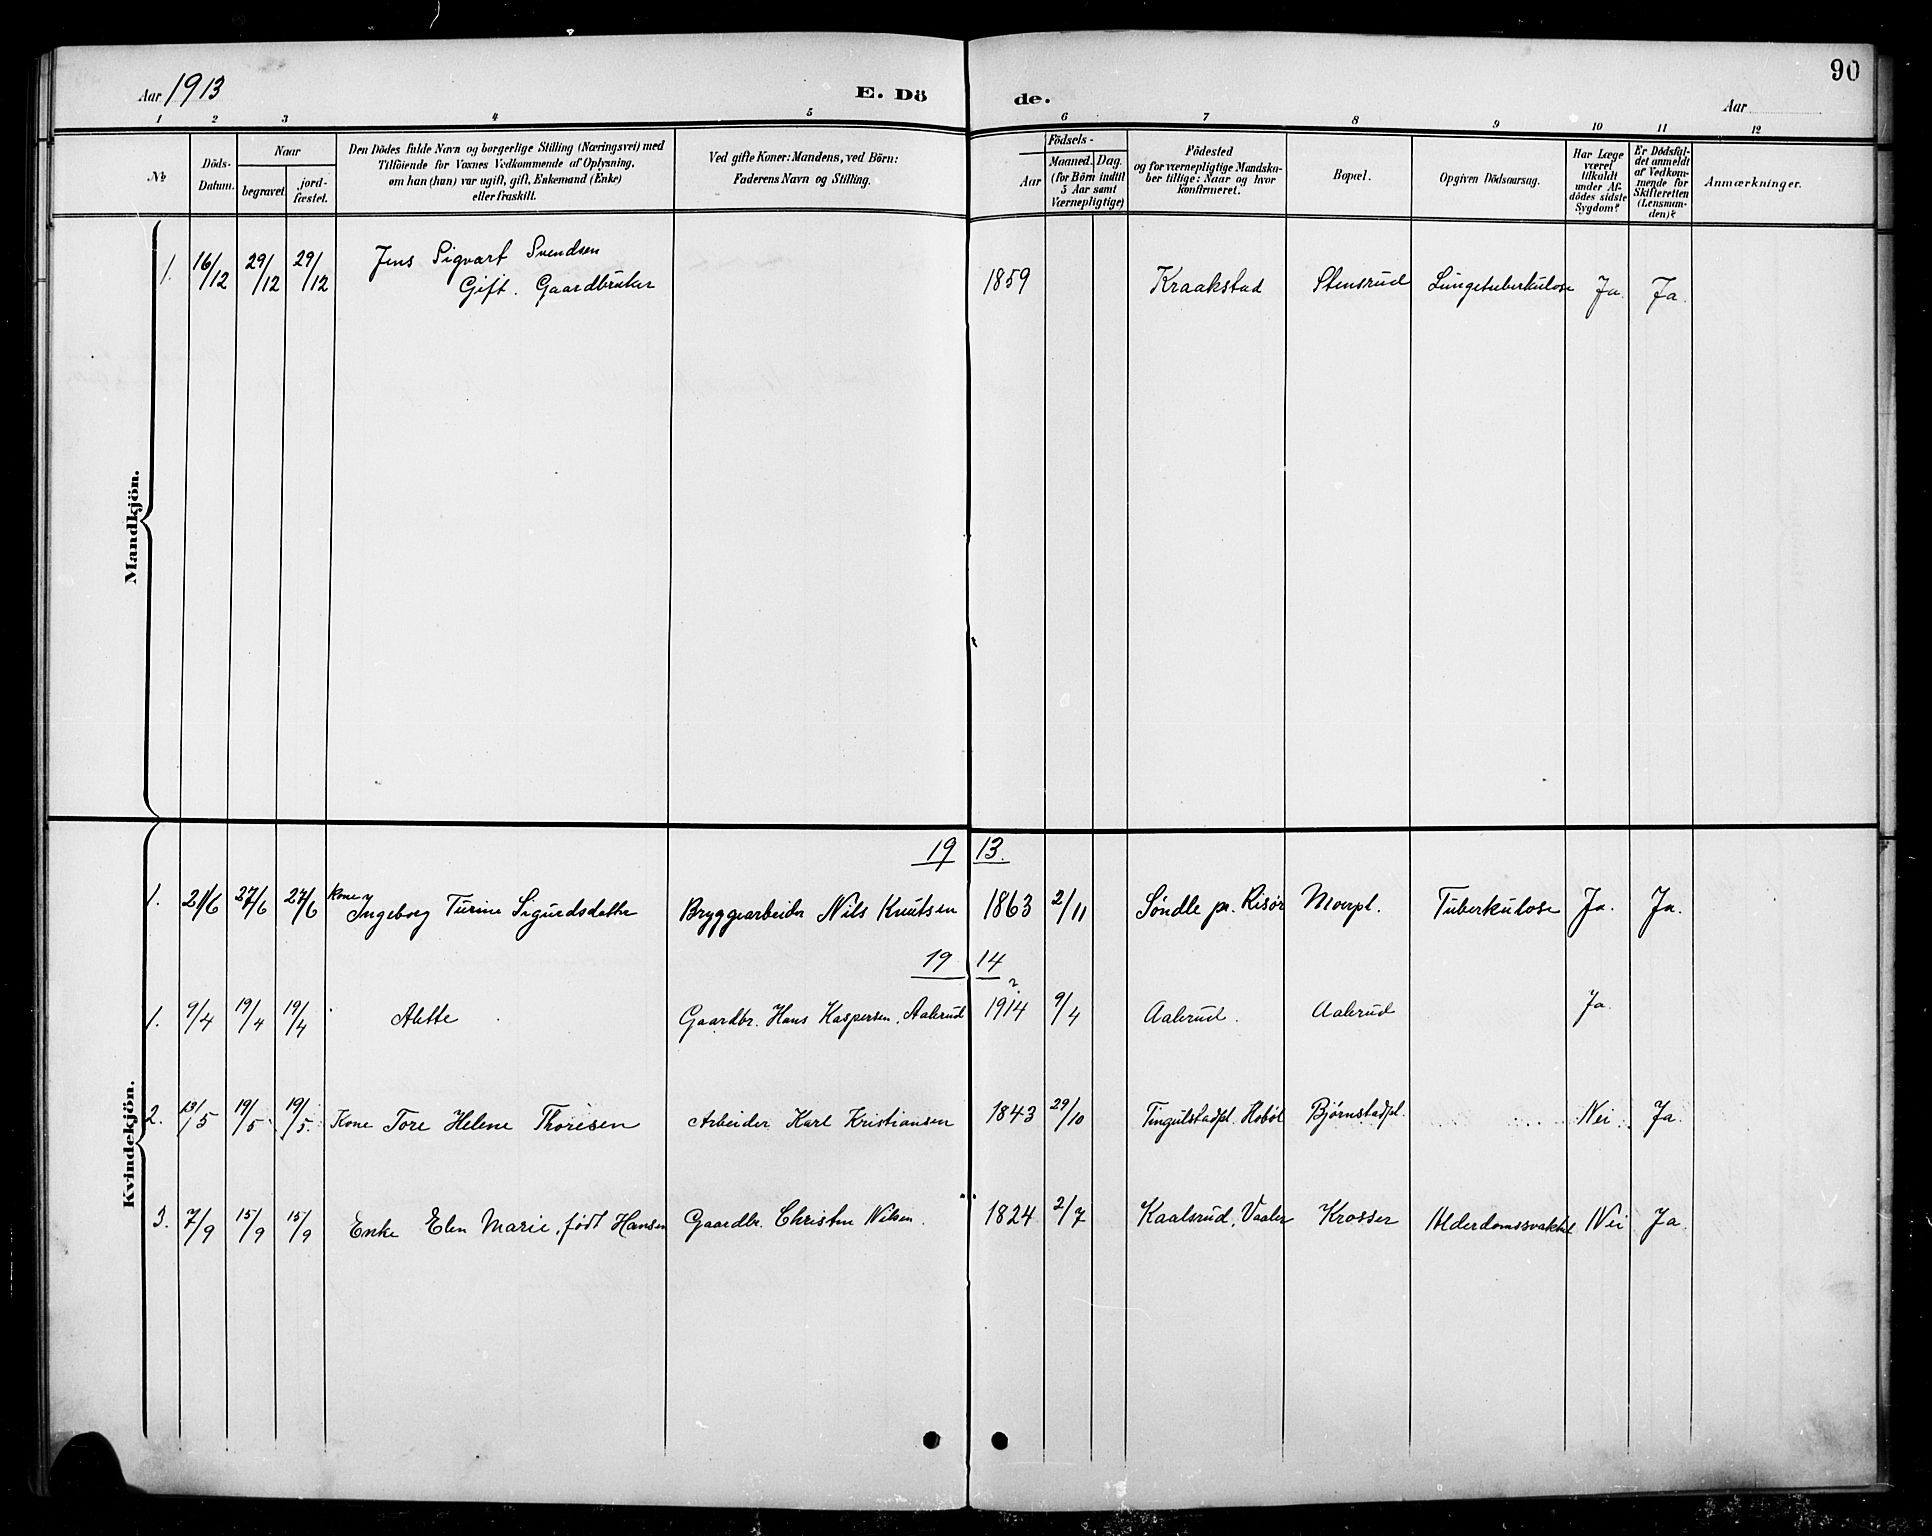 90
Aar 1913
E. Dö de.
Aar
1 2 3 4 5 6 7 8 9 10 11 12
No
Döds-Datum.
Naar
begravet.
jord-fæstet.
Den Dödes fulde Navn og borgerlige Stilling (Næringsvei) med
Tilföiende for Voxnes Vedkommende af Oplysning,
om han (hun) var ugift, gift, Enkemand (Enke)
eller fraskilt.
Ved gifte Koner: Mandens, ved Börn:
Faderens Navn og Stilling.
Födsels-
Aar
Maaned. Dag.
(for Börn indtil
5 Aar samt
Værnepligtige)
Födested
og for værnepligtige Mandska-
ber tillige: Naar og hvor
konfirmeret.
Bopæl.
Opgiven Dödsaarsag.
Har Læge
været
tilkaldt
under Af-
dödes sidste
Sygdom?
Er Dödsfal-
det anmeldt
af Vedkom-
mende for
Skifteretten
(Lensman-
den)?
Anmærkninger.
Mandkjön.
1. 16/12 29/12 29/12 Jens Sigvart Svendsen
Gift. Gaardbruker 1859 Kraakstad Stensrud Lungetuberkulose Ja. Ja.
Kvindekjön.
19 13.
1. 21/6 27/6 27/6 Kone Ingeborg Turine Sigurdsdatter Bryggearbeider Nils Knutsen 1863 2/11 Søndle pr. Risør Moerpl. Tuberkulose Ja. Ja.
19 14
1. 9/4 19/4 19/4 Alette Gaardbr. Hans Kaspersen, Aalerud 1914 9/4 Aalerud. Aalerud Ja.
2. 13/5 19/5 19/5 Kone Tore Helene Thoresen Arbeider Karl Kristiansen 1843 29/10 Tingulstadpl. Hobøl Bjørnstadpl. Nei Ja.
3. 7/9 15/9 15/9 Enke Elen Marie, født Hansen Gaardbr. Christen Nilsen. 1824 2/7 Kaalsrud, Vaaler Krosser Alderdomssvakhet Nei Ja.